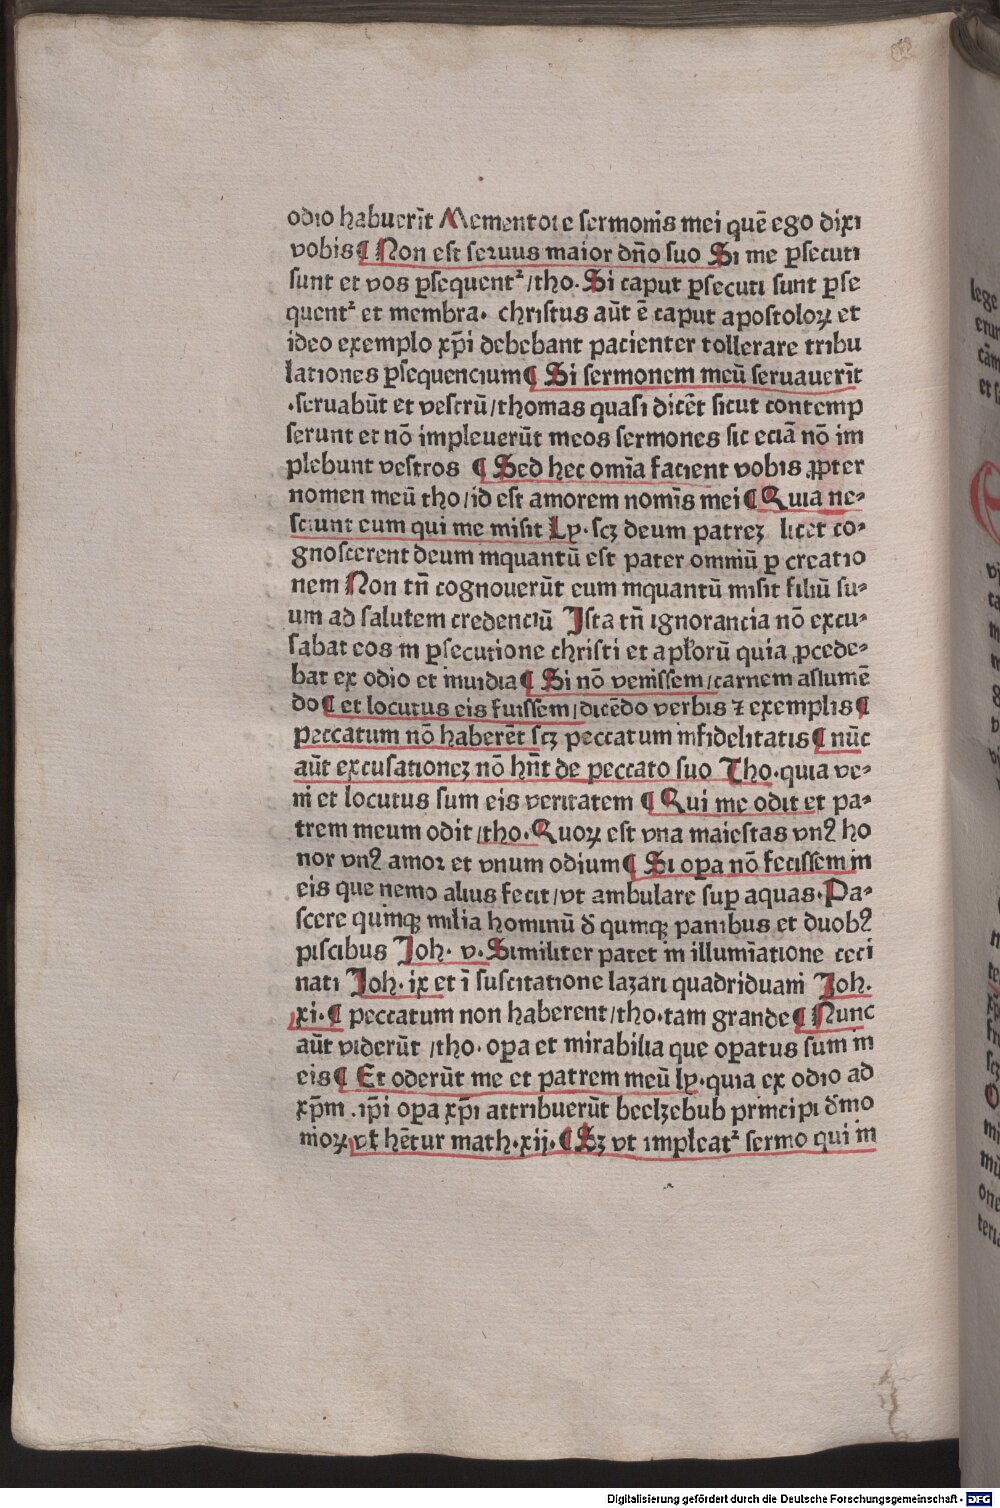 odio habuerīt Mementote sermonis mei quē ego dixi
vobis ¶ Non est seruus maior dño suo Si me ꝑsecuti
sunt et vos ꝑsequentᷣ /tho. Si caput ꝑsecuti sunt ꝑse
quentᷣ et membra. christus aūt ē caput apostoloꝝ et
ideo exemplo xp̄i debebant pacienter tollerare tribu
lationes ꝑsequencium ¶ Si sermonem meū seruauerīt
.seruabūt et vestrū/thomas quasi dicēt sicut contemp
serunt et nō impleuerūt meos sermones sic eciā nō im
plebunt vestros ¶ Sed hec omīa facient vobis ꝓpter
nomen meū tho/id est amorem nomīs mei ¶ Quia ne⸗
sciunt eum qui me misit Ly. scꝫ deum patreꝫ licet co⸗
gnoscerent deum inquantū est pater omniū ꝑ creatio
nem Non tn̄ cognouerūt eum inquantū misit filiū su⸗
um ad salutem credenciū Ista tn̄ ignorancia nō excu⸗
sabat eos in ꝑsecutione christi et apl̄orū quia ꝓcede⸗
bat ex odio et inuidia ¶ Si nō venissem/carnem assumē
do ¶ et locutus eis fuissem/dicēdo verbis ⁊ exemplis ¶
peccatum nō haberēt scꝫ peccatum infidelitatis ¶ nūc
aūt excusationeꝫ nō hn̄t de peccato suo Tho. quia ve⸗
ni et locutus sum eis veritatem ¶ Qui me odit et pa⸗
trem meum odit/tho. Quoꝝ est vna maiestas vnꝰ ho
nor vnꝰ amor et vnum odium ¶ Si oꝑa nō fecissem in
eis que nemo alius fecit/vt ambulare suꝑ aquas. Pa⸗
scere quinqꝫ milia hominū đ quinqꝫ panibus et duobꝰ
piscibus Joh. v. Similiter patet in illumīatione ceci
nati Joh. ix et ī suscitatione lazari quadriduani Joh.
xi. ¶ peccatum non haberent/tho. tam grande ¶ Nunc
aūt viderūt /tho. oꝑa et mirabilia que oꝑatus sum in
eis ¶ Et oderūt me et patrem meū ly. quia ex odio ad
xp̄m .ip̄i oꝑa xp̄i attribuerūt beelzebub principi d̄mo
nioꝝ vt hētur math. xij. ¶ Sꝫ vt impleatᷣ sermo qui in
Digitalisierung gefördert durch die Deutsche Forschungsgemeinschaft - DFG